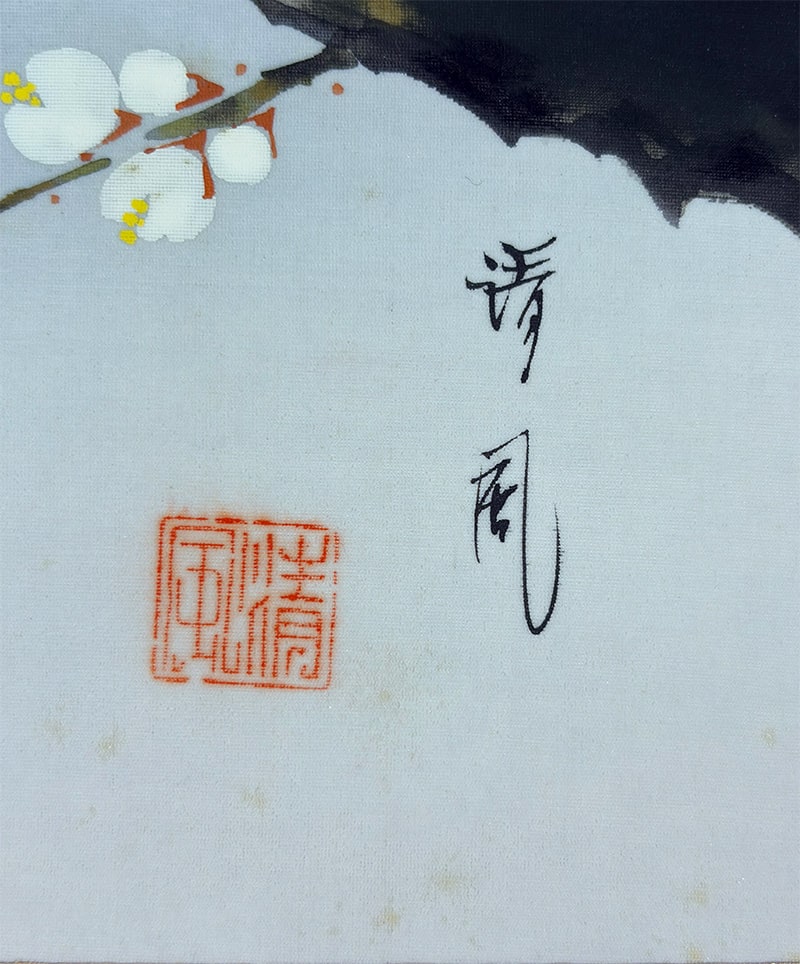 清風
清風